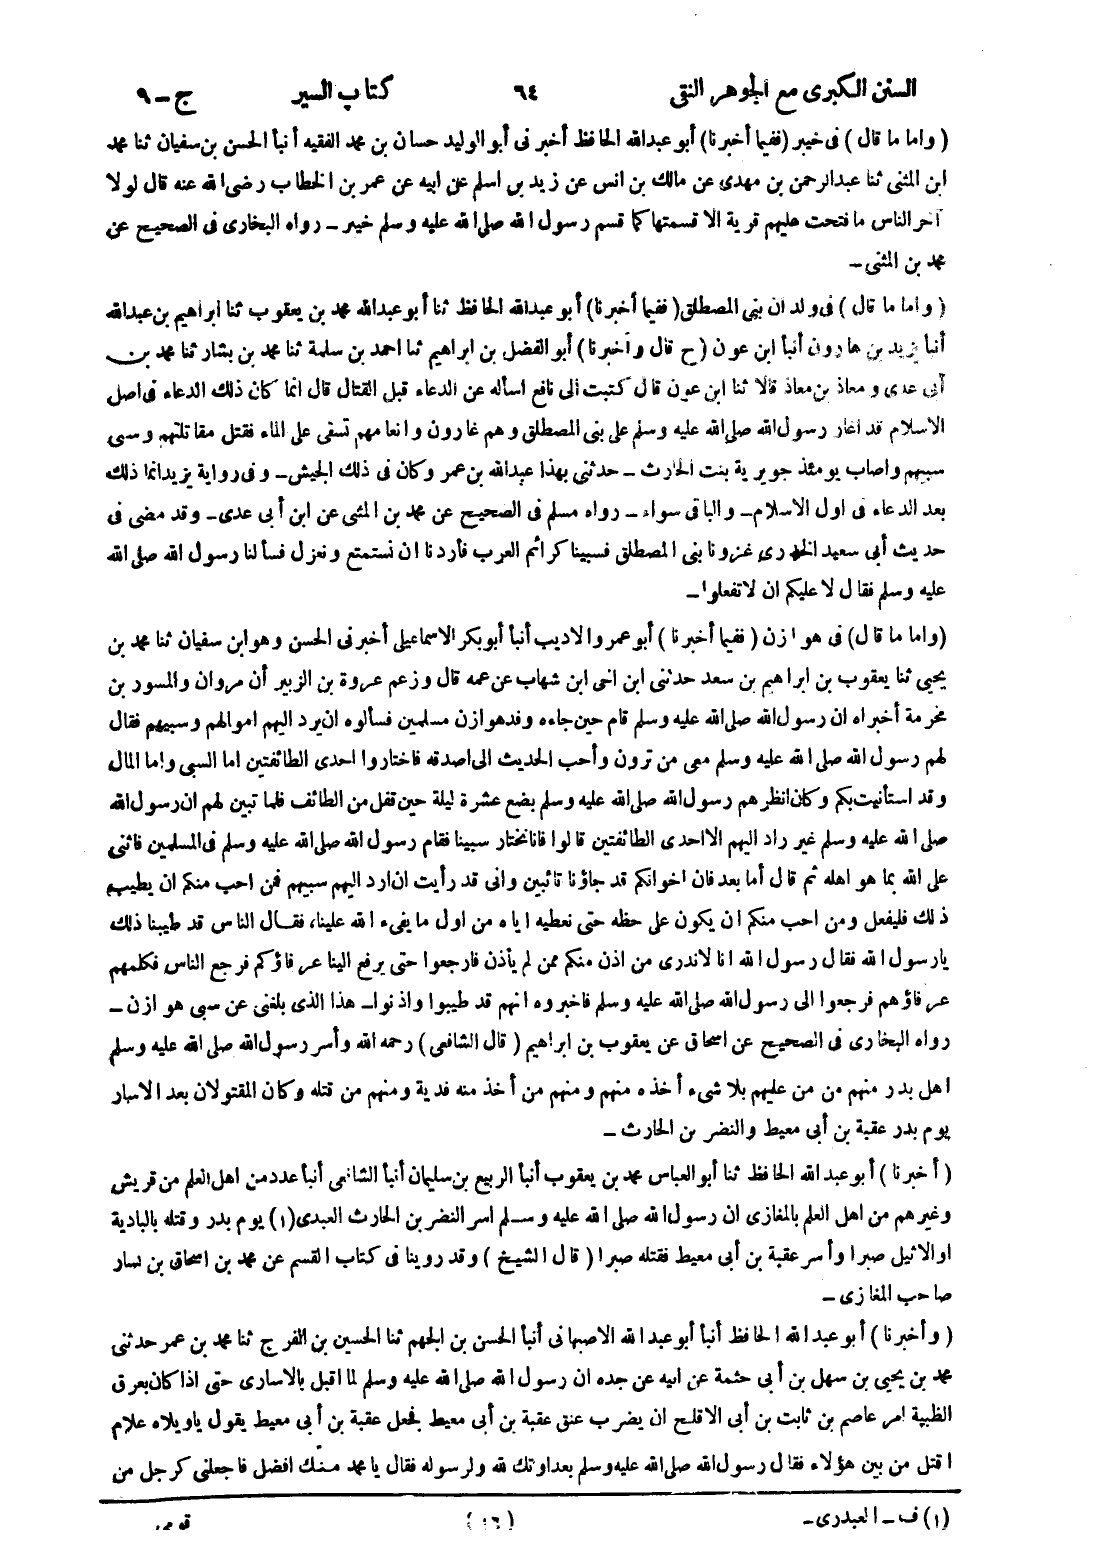 السنن الكبرى مع الجوهر النقى ٦٤ كتاب السير ج ـ ٩
( واما ما قال ) فى خيبر (ففيما أخبرنا) أبو عبدالله الحافظ أخبرنى أبو الوليد حسان بن محمد الفقيه أنبأ الحسن بن سفيان ثنا محمد
ابن المثنى ثنا عبدالرحمن بن مهدى عن مالك بن انس عن زيد بن اسلم عن ابيه عن عمر بن الخطاب رضى الله عنه قال لولا
آخر الناس ما فتحت عليهم قرية الا قسمتها كما قسم رسول الله صلى الله عليه وسلم خيبر ـ رواه البخارى فى الصحيح عن
محمد بن المثنى ـ
( واما ما قال ) فى ولدان بنى المصطلق( ففيما أخبرنا) أبو عبدالله الحافظ ثنا أبو عبدالله محمد بن يعقوب ثنا ابراهيم بن عبدالله
أنبأ يزيد بن هارون أنبأ ابن عون ( ح قال وأخبرنا ) أبو الفضل بن ابراهيم ثنا احمد بن سلمة ثنا محمد بن بشار ثنا محمد بن
أبى عدى و معاذ بن معاذ قالا ثنا ابن عون قال كتبت الى نافع اسأله عن الدعاء قبل القتال قال انما كان ذلك الدعاء فى اصل
الاسلام قد اغار رسول الله صلى الله عليه وسلم على بنى المصطلق و هم غارون و انعامهم تسقى على الماء فقتل مقاتلتهم وسبى
سبيهم واصاب يومئذ جويرية بنت الحارث ـ حدثنى بهذا عبدالله بن عمر وكان فى ذلك الجيش ـ وفى رواية يزيد انما ذلك
بعد الدعاء فى اول الاسلام ـ والباقى سواء ـ رواه مسلم فى الصحيح عن محمد بن المثنى عن ابن أبى عدى ـ وقد مضى فى
حديث أبى سعيد الخدرى غزونا بنى المصطلق فسبينا كرائم العرب فأردنا ان نستمتع ونعزل فسألنا رسول الله صلى الله
عليه وسلم فقال لا عليكم ان لا تفعلوا ـ
(واما ما قال) فى هوازن ( ففيما أخبرنا ) أبو عمرو الاديب أنبأ أبو بكر الاسماعيلى أخبرنى الحسن وهو ابن سفيان ثنا محمد بن
يحيى ثنا يعقوب بن ابراهيم بن سعد حدثنى ابن اخى ابن شهاب عن عمه قال وزعم عروة بن الزبير أن مروان والمسور بن
مخرمة أخبراه ان رسول الله صلى الله عليه وسلم قام حين جاءه وفد هوازن مسلمين فسألوه ان يرد اليهم اموالهم وسبيهم فقال
لهم رسول الله صلى الله عليه وسلم معى من ترون وأحب الحديث الى اصدقه فاختاروا احدى الطائفتين اما السبى واما المال
وقد استأنيت بكم وكان انظرهم رسول الله صلى الله عليه وسلم بضع عشرة ليلة حين قفل من الطائف فلما تبين لهم ان رسول الله
صلى الله عليه وسلم غير راد اليهم الا احدى الطائفتين قالوا فانا نختار سبينا فقام رسول الله صلى الله عليه وسلم فى المسلمين فاثنى
على الله بما هو اهله ثم قال أما بعد فان اخوانكم قد جاؤنا تائبين وانى قد رأيت ان ارد اليهم سبيهم فمن احب منكم ان يطيب
ذلك فليفعل ومن احب منكم ان يكون على حظه حتى نعطيه اياه من اول ما يفىء الله علينا، فقال الناس قد طيبنا ذلك
يا رسول الله فقال رسول الله انا لا ندرى من اذن منكم ممن لم يأذن فارجعوا حتى يرفع الينا عرفاؤكم فرجع الناس فكلمهم
عرفاؤهم فرجعوا الى رسول الله صلى الله عليه وسلم فاخبروه انهم قد طيبوا واذنوا ـ هذا الذى بلغنى عن سبى هوازن ـ
رواه البخارى فى الصحيح عن اسحاق عن يعقوب بن ابراهيم ( قال الشافعى ) رحمه الله وأسر رسول الله صلى الله عليه وسلم
اهل بدر منهم من من عليهم بلا شىء أخذه منهم ومنهم من أخذ منه فدية ومنهم من قتله وكان المقتولان بعد الاسار
يوم بدر عقبة بن أبى معيط والنضر بن الحارث ـ
( أخبرنا ) أبو عبدالله الحافظ ثنا أبو العباس محمد بن يعقوب أنبأ الربيع بن سليمان أنبأ الشافعى أنبأ عدد من اهل العلم من قريش
وغيرهم من اهل العلم بالمغازى ان رسول الله صلى الله عليه وسلم اسر النضر بن الحارث العبدى(١) يوم بدر وقتله بالبادية
او الاثيل صبرا وأسر عقبة بن أبى معيط فقتله صبرا ( قال الشيخ ) وقد روينا فى كتاب القسم عن محمد بن اسحاق بن يسار
صاحب المغازى ـ
( وأخبرنا ) أبو عبدالله الحافظ أنبأ أبو عبدالله الاصبهانى أنبأ الحسن بن الجهم ثنا الحسين بن الفرج ثنا محمد بن عمر حدثنى
محمد بن يحيى بن سهل بن أبى حثمة عن ابيه عن جده ان رسول الله صلى الله عليه وسلم لما اقبل بالاسارى حتى اذا كان بعرق
الظبية امر عاصم بن ثابت بن أبى الاقلح ان يضرب عنق عقبة بن أبى معيط فجعل عقبة بن أبى معيط يقول يا ويلاه علام
اقتل من بين هؤلاء فقال رسول الله صلى الله عليه وسلم بعداوتك لله ولرسوله فقال يا محمد منك افضل فاجعلنى كرجل من
(١) ف ـ العبدرى ـ (١٦) قومى